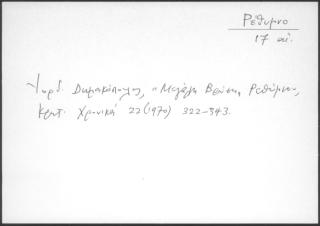 Ρέθυμνο
17 αἰ.
Ἰορδ. Δημακόπουλος, «Μεγάλη Βρύση» Ρεθύμνου,
Κρητ. Χρονικά 22 (1970) 322-343.